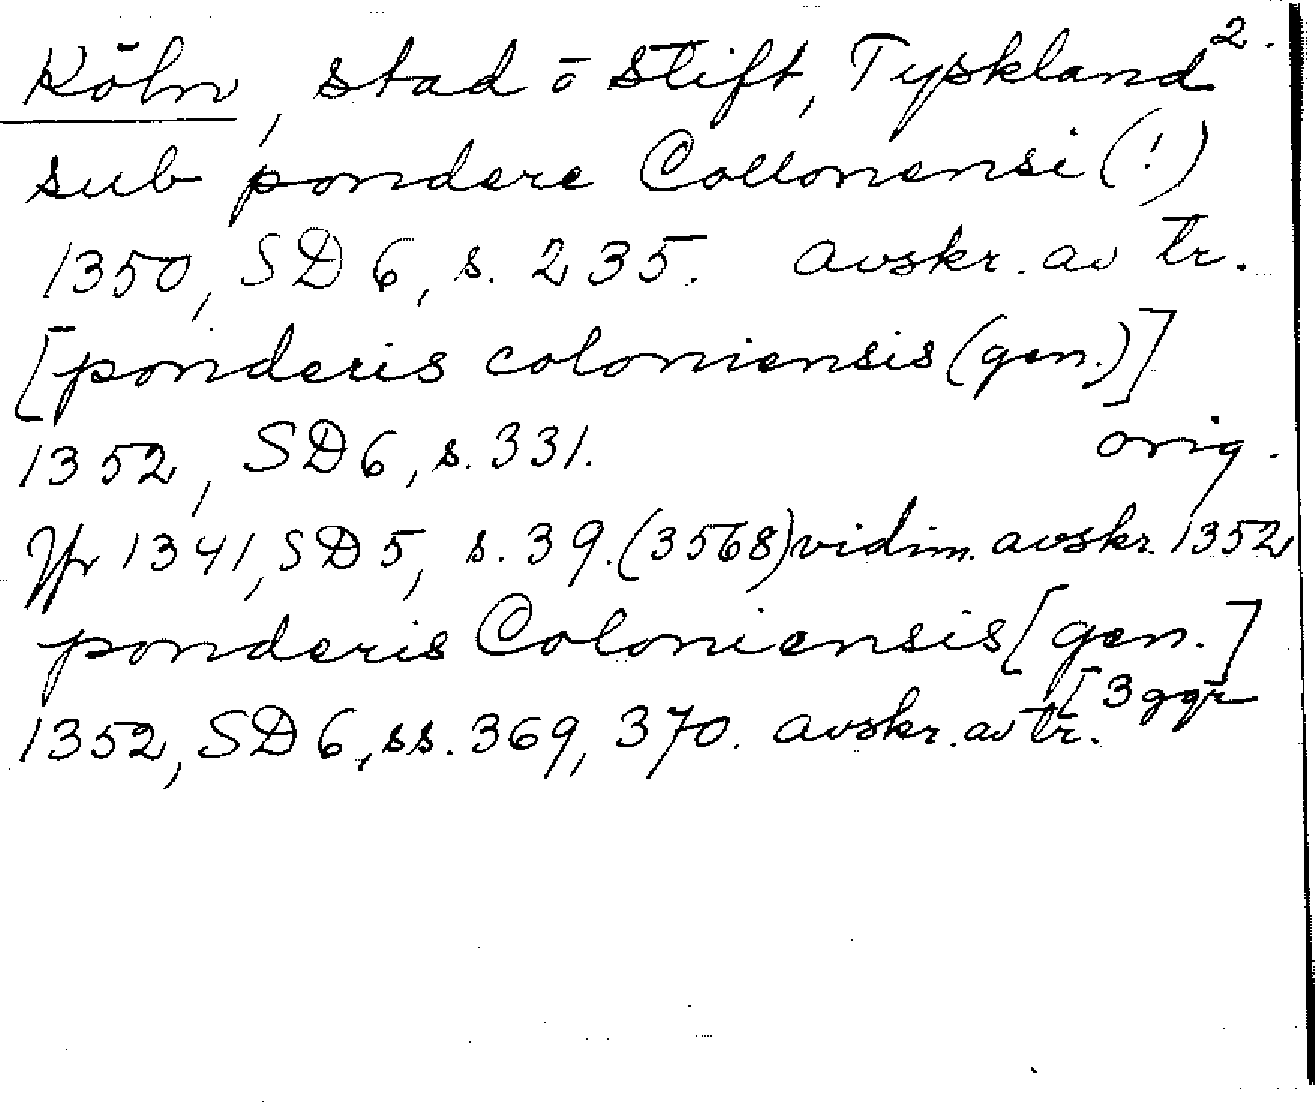 Köln, stad o stift, Tyskland 2.
sub pondere Collonensi (!)
1350, SD 6, s. 235. avskr. av tr.
[ponderis coloniensis (gen.)]
1352, SD 6, s. 331. orig.
Jfr 1341, SD 5, s. 39. (3568) vidim. avskr. 1352
ponderis Coloniensis [gen.]
1352, SD 6, ss. 369, 370. avskr. av tr. [3 ggr